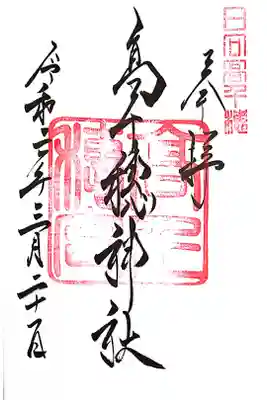 日向高千穂
奉拝
高千穂神社
令和二年三月二十一日